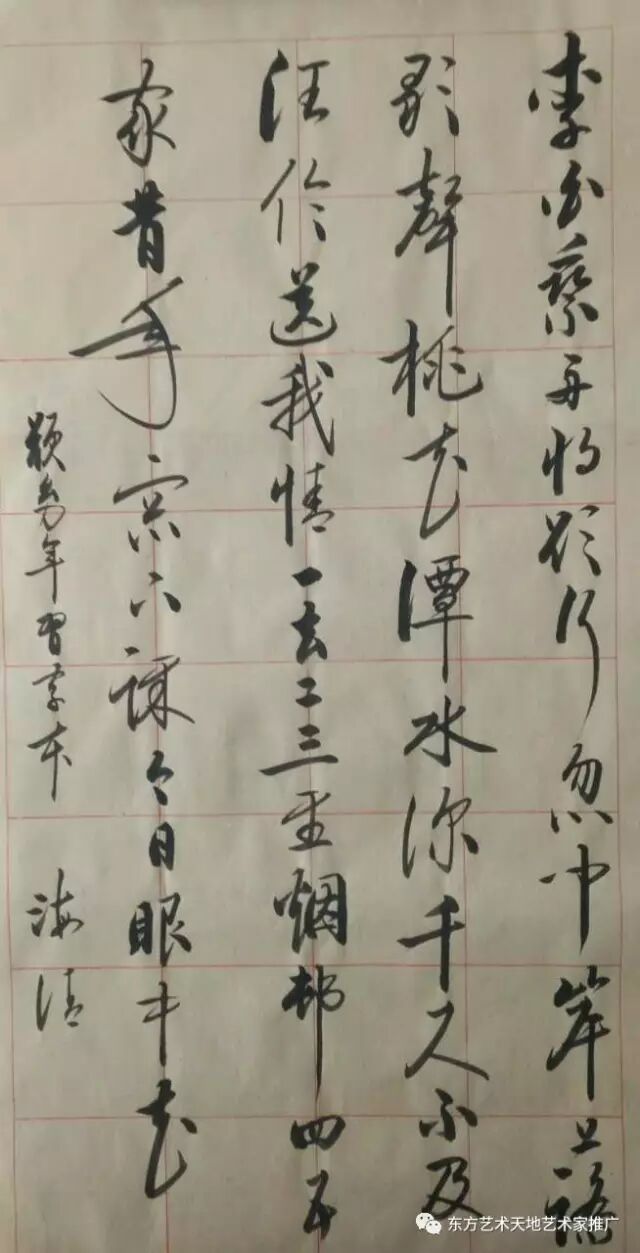 李白乘舟将欲行忽闻岸上踏
歌聲桃花潭水深千尺不及
汪伦送我情一去二三里烟邨四五
家昔年六课今日眼中花
年習字本 海清
东方艺术天地艺术家推广